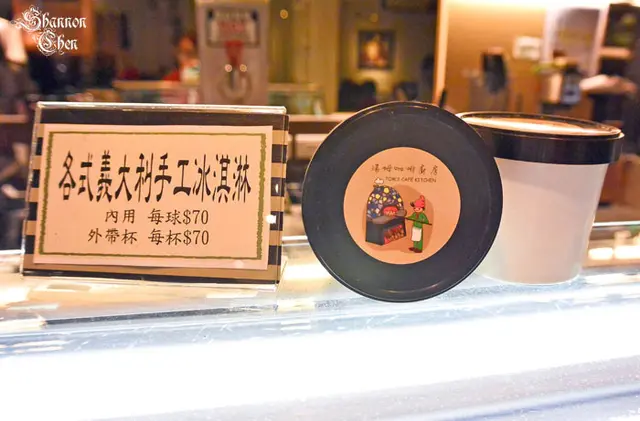 Shannon
Chen
各式義大利手工冰淇淋
內用 每球$70
外帶杯 每杯$70
湯姆咖啡廚房
TOM'S CAFÉ KETCHEN